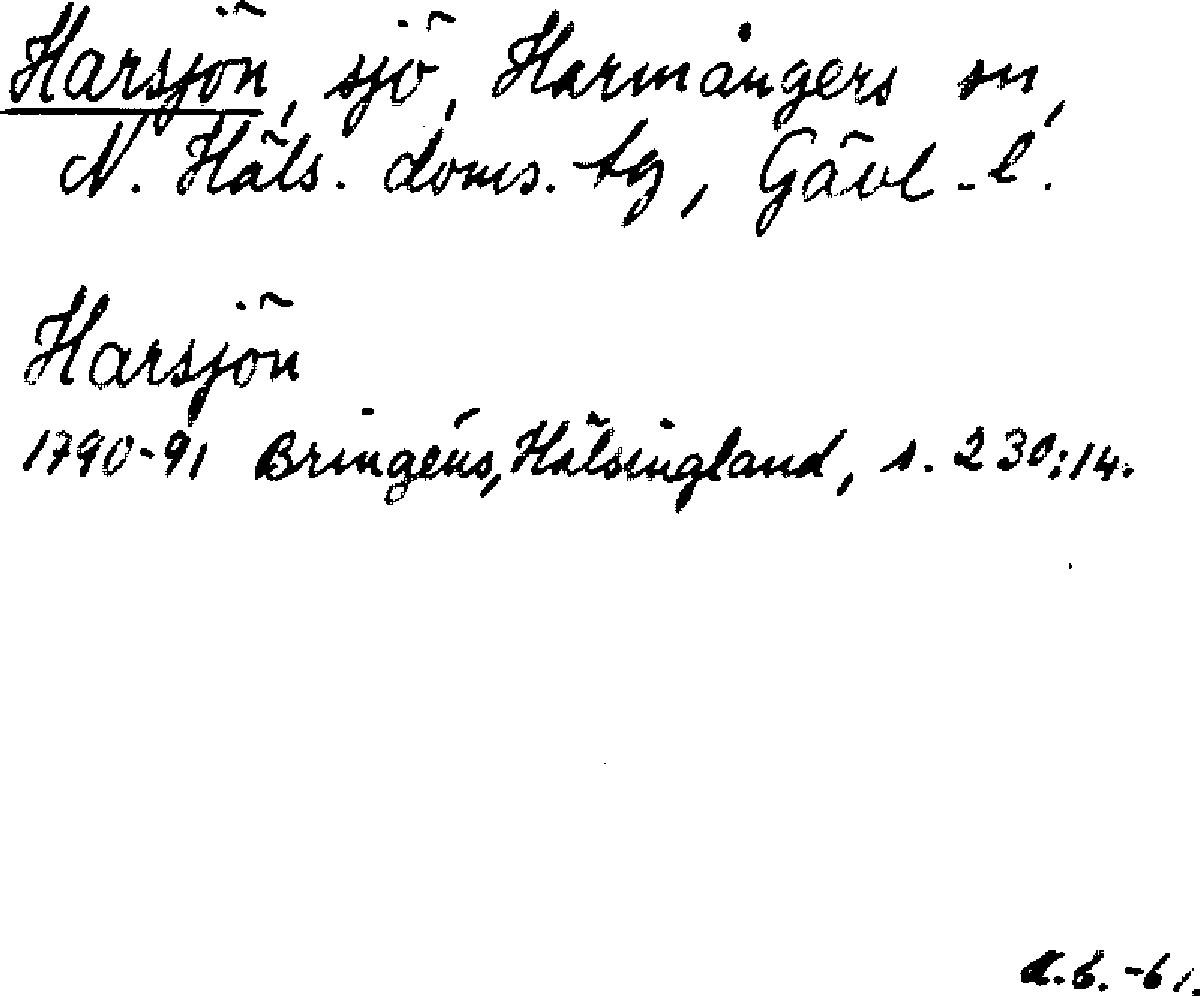 Harsjön, sjö, Harmångers sn,
N. Häls. doms. tg, Gävl. l.
Harsjön
1790-91 Bringéus, Hälsingland, s. 230:14.
A.b. -61.